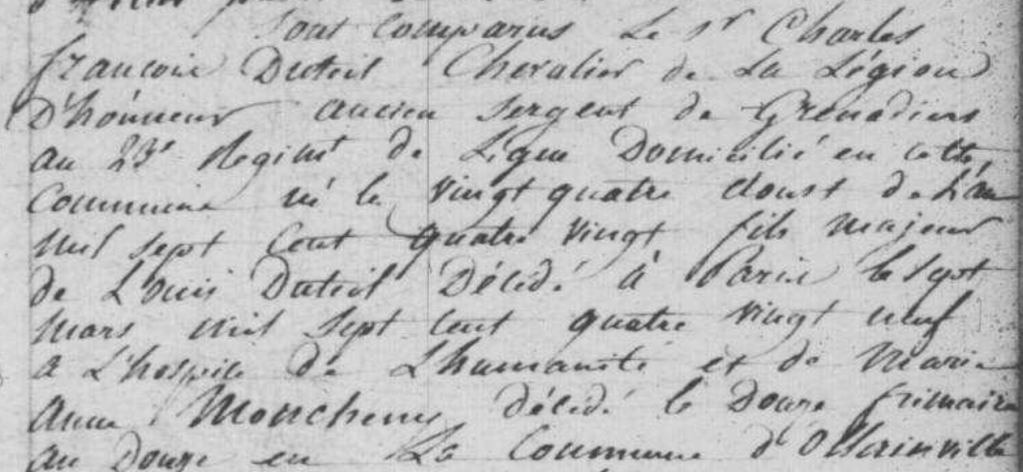 Sont comparus Le Sr Charles
francois Duteil Chevalier de La Légion
D'hónneur ancien sergent de Grenadiers
au 23e Regimt de Ligne Domicilié en cette
Commune né le vingt quatre d'oust de L'an
mil sept Cent quatre vingt fils majeur
de Louis Duteil Décédé à Paris le sept
mars mil sept cent quatre vingt neuf
a L'hospice de Lhumanité et de Marie
anne Moncheny décédé le Douze frimaire
an Douze en La Commune d'Ollainville